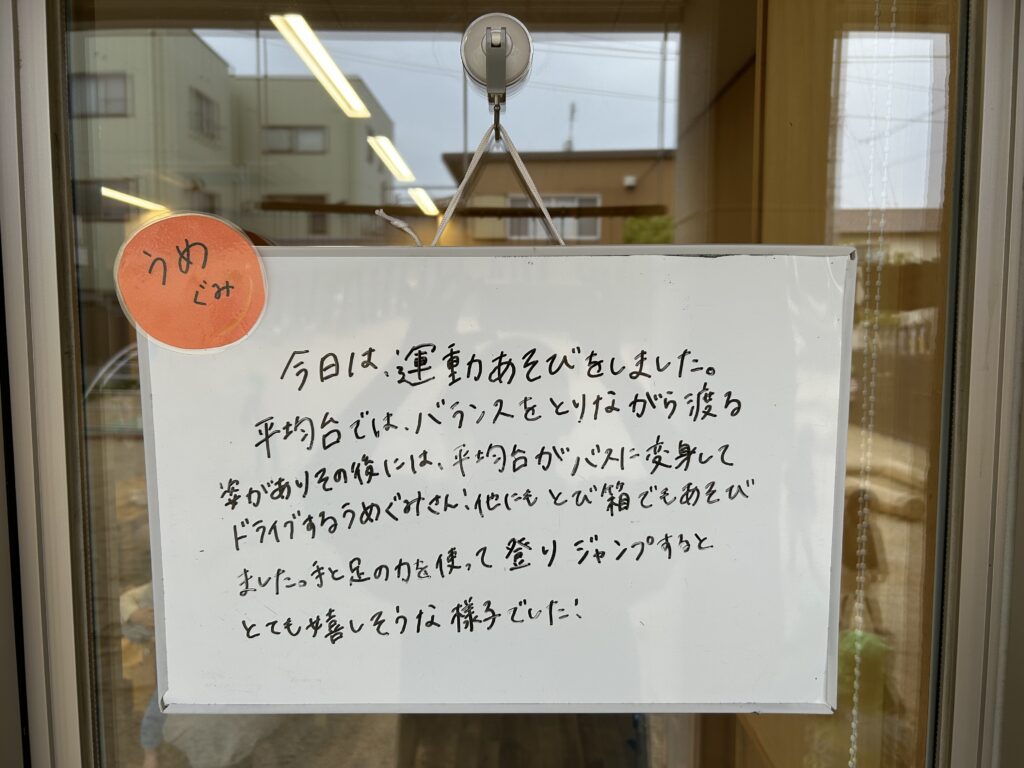 うめ
ぐみ
今日は、運動あそびをしました。
平均台では、バランスをとりながら渡る
姿がありその後には、平均台がバスに変身して
ドライブするうめぐみさん!他にもとび箱でもあそび
ました。手と足の力を使って登りジャンプすると
とても嬉しそうな様子でした!